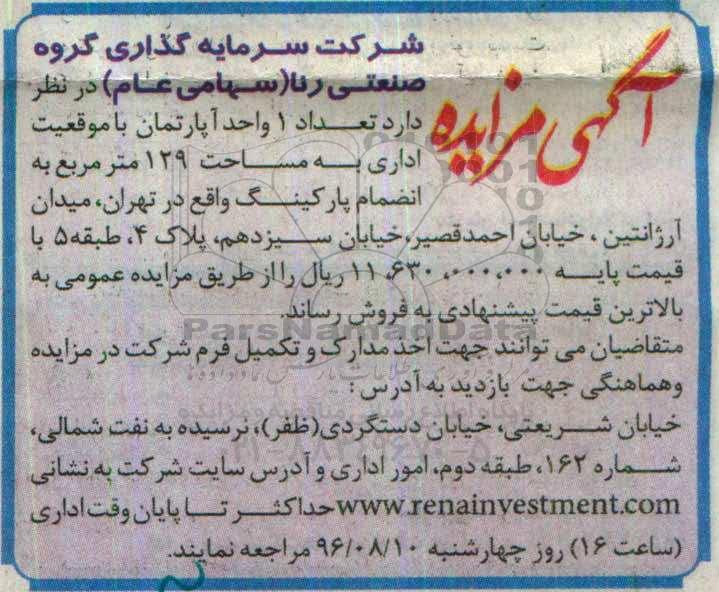 آگهی مزایده
شرکت سرمایه گذاری گروه
صنعتی رنا(سهامی عام) در نظر
دارد تعداد ۱ واحد آپارتمان با موقعیت
اداری به مساحت ۱۲۹ متر مربع به
انضمام پارکینگ واقع در تهران، میدان
آرژانتین ، خیابان احمدقصیر،خیابان سیزدهم، پلاک ۴، طبقه۵ با
قیمت پایه ۱۱،۶۳۰،۰۰۰،۰۰۰ ریال را از طریق مزایده عمومی به
بالاترین قیمت پیشنهادی به فروش رساند.
ParsNamadData
متقاضیان می توانند جهت اخذ مدارک و تکمیل فرم شرکت در مزایده
وهماهنگی جهت بازدید به آدرس :
خیابان شریعتی، خیابان دستگردی(ظفر)، نرسیده به نفت شمالی،
شماره ۱۶۲، طبقه دوم، امور اداری و آدرس سایت شرکت به نشانی
www.renainvestment.com حداکثر تا پایان وقت اداری
(ساعت ۱۶) روز چهارشنبه ۹۶/۰۸/۱۰ مراجعه نمایند.